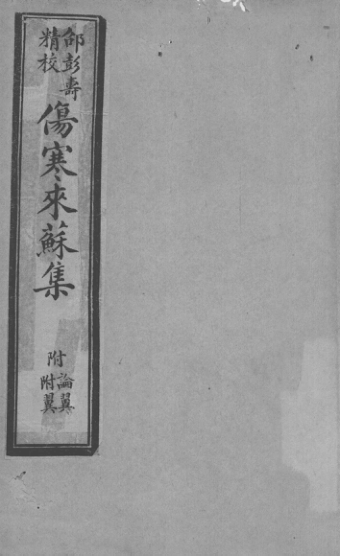 邰彭壽
精校
傷寒來蘇集
附論翼
附翼